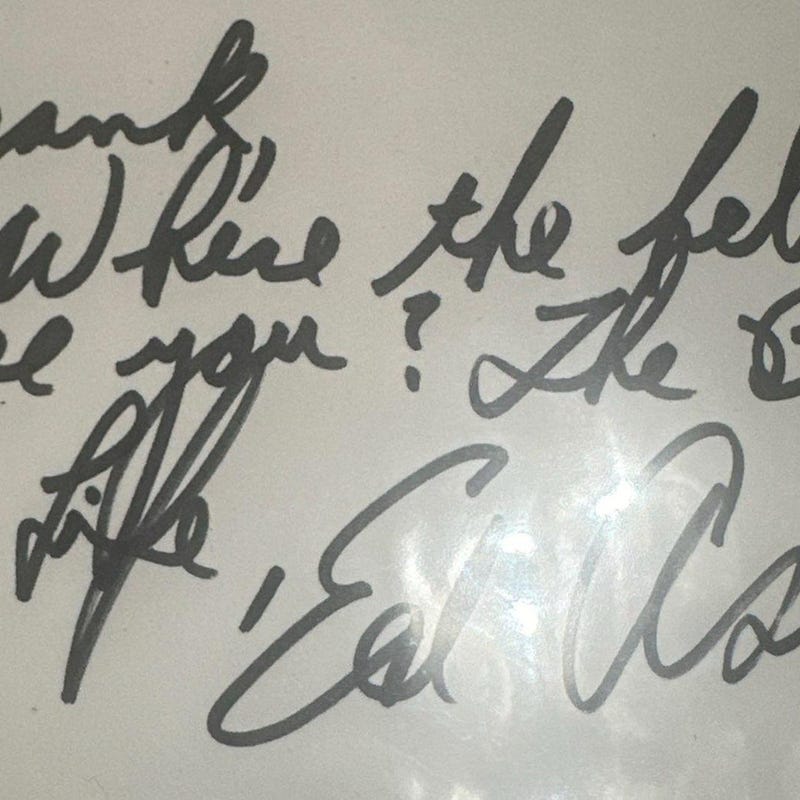 ank,
Where the hel
re you? The B
Like,
Ed As